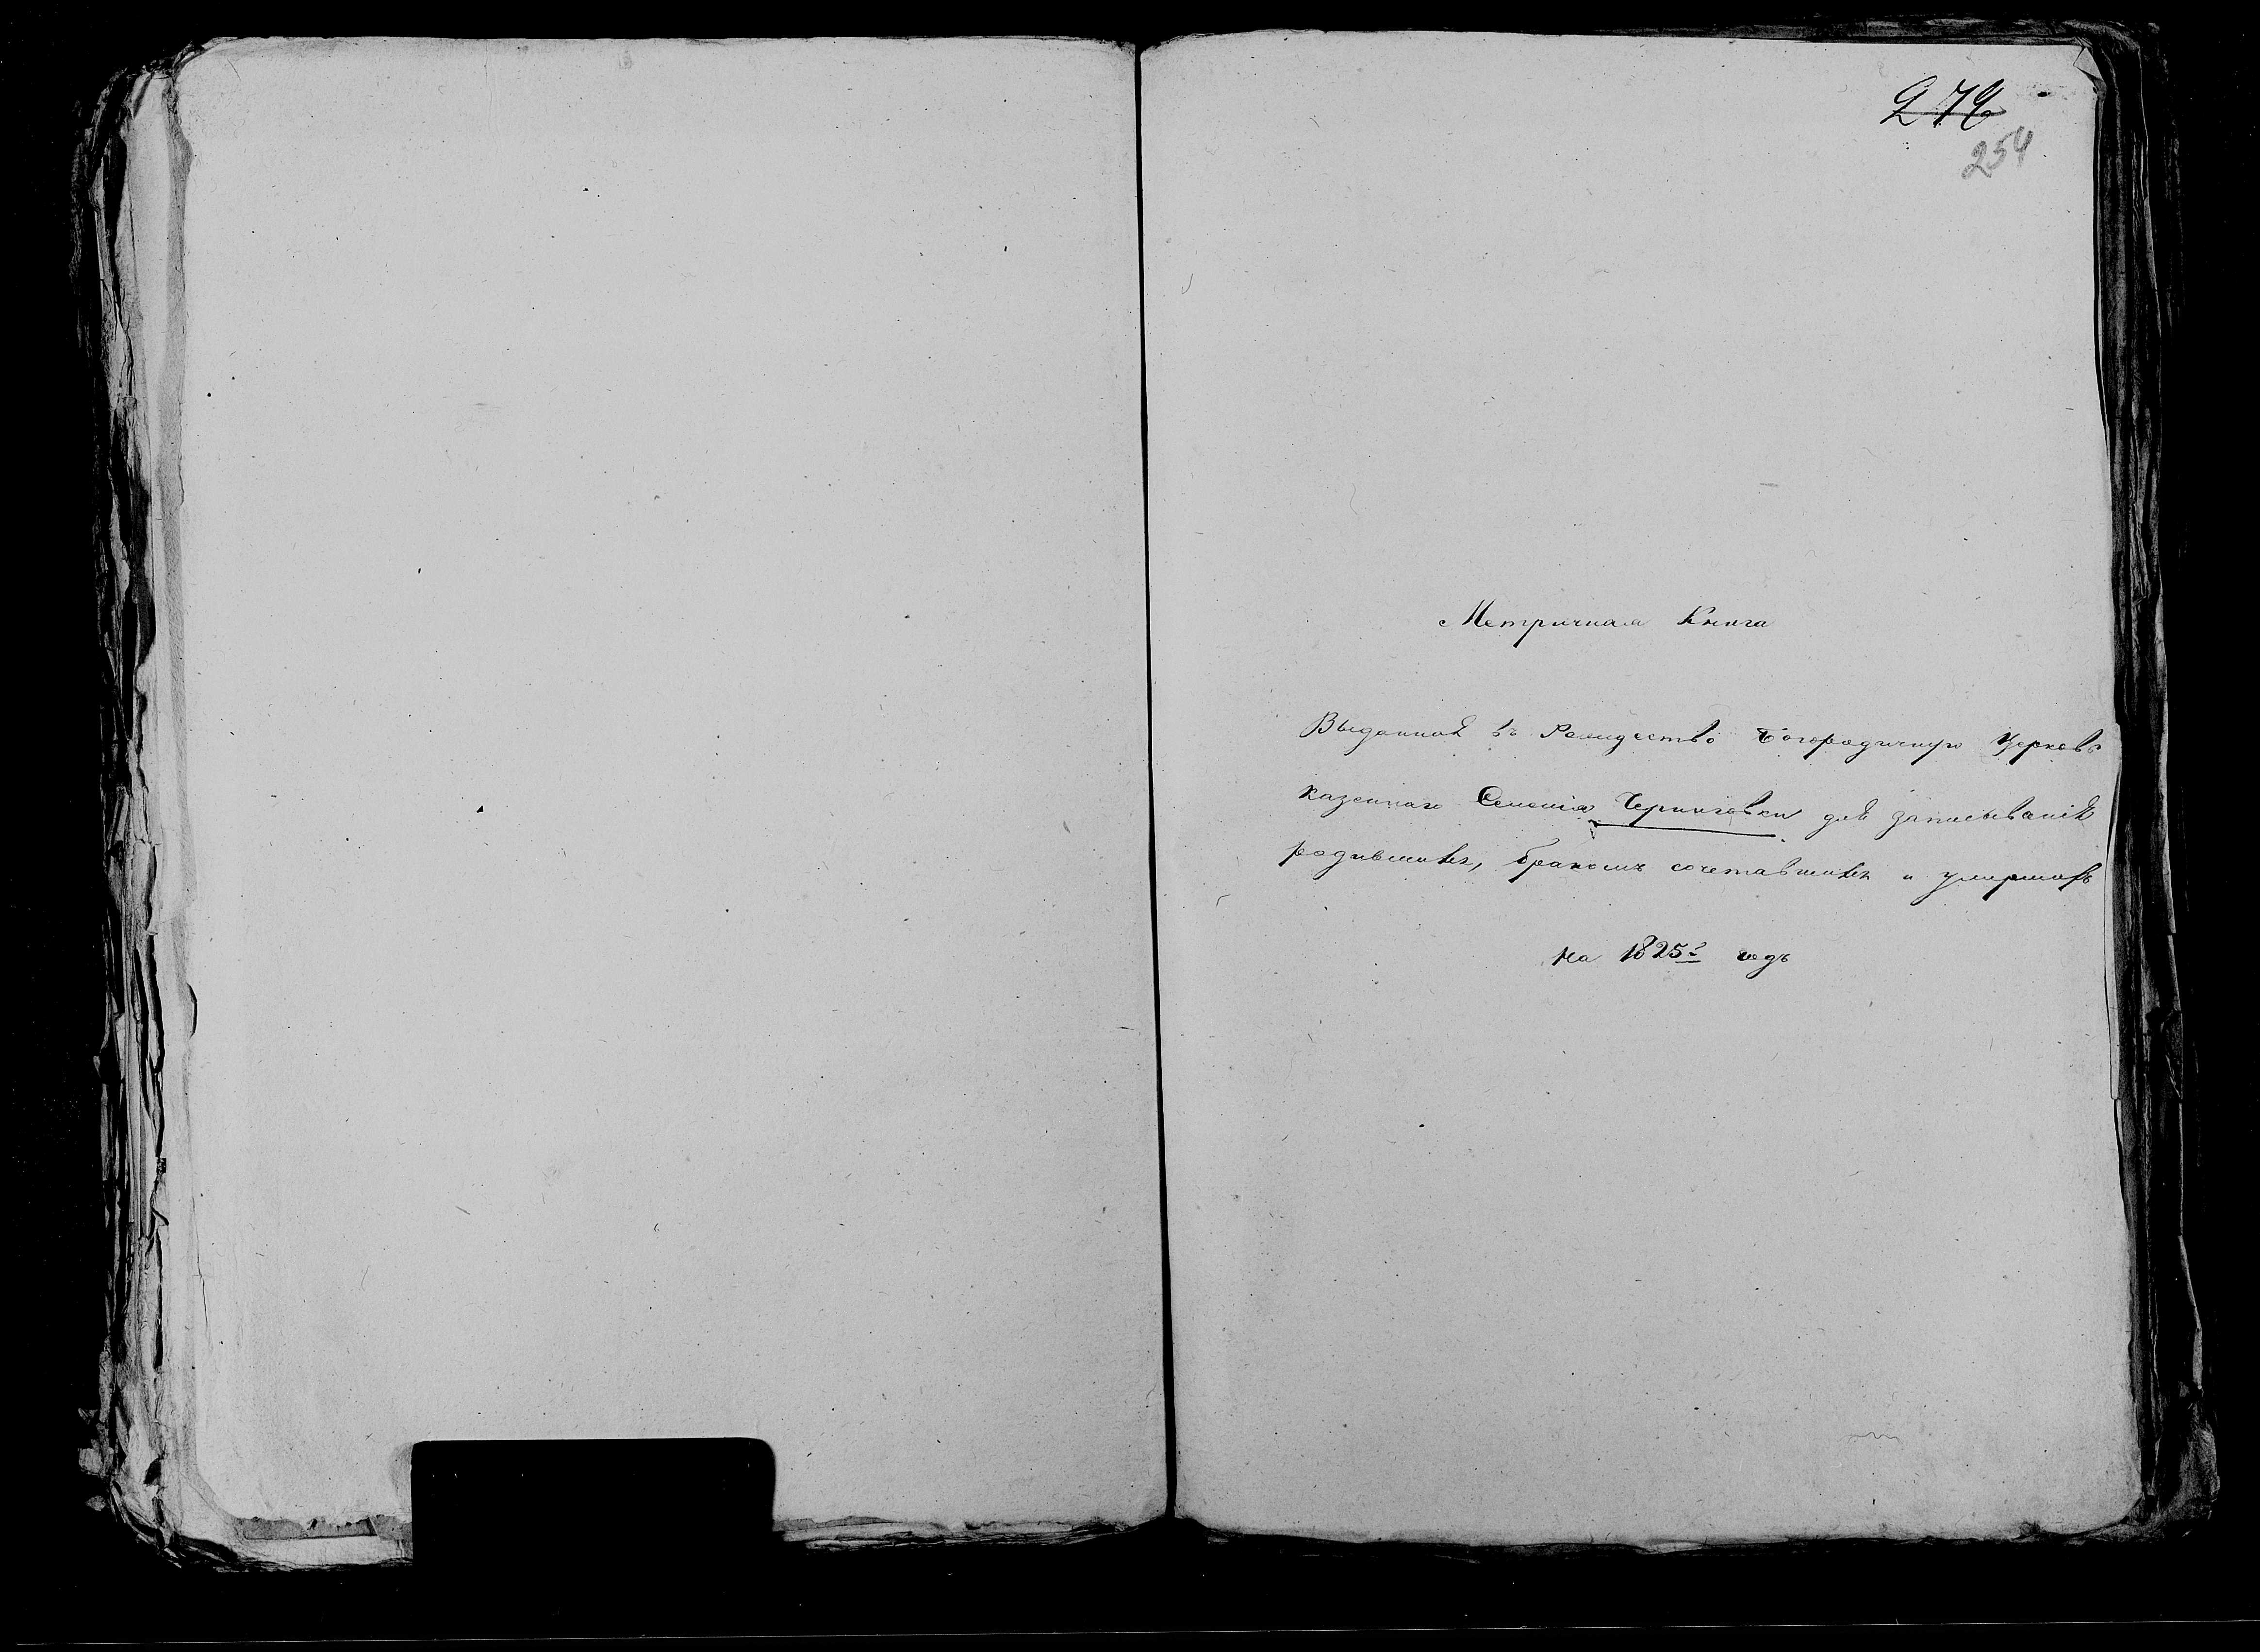 274
254
Метричная Книга
Выданная въ Рождество Богородичную Церковь
казеннаго Селенія Черниговки для записыванія
родившихъ, бракомъ сочетавшихъ и умершихъ
на 1825й годъ